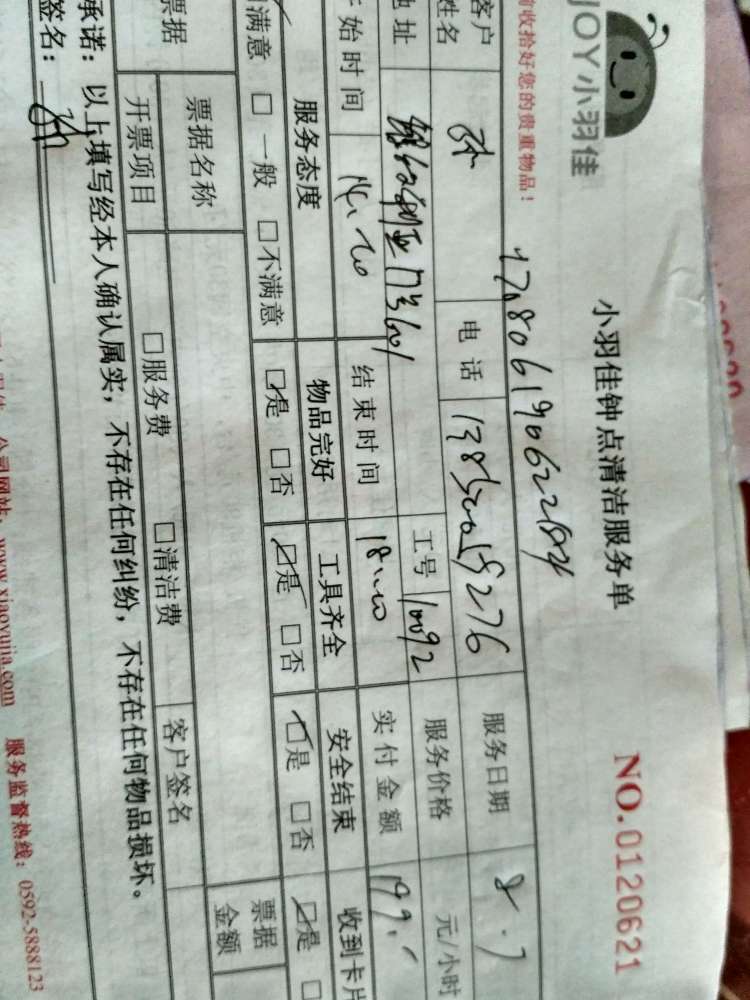 JOY小羽佳
小羽佳钟点清洁服务单
NO.0120621
前收拾好您的贵重物品!
客户姓名 电话 服务日期 8.7
地址 工号 10092 服务价格 元/小时
始时间 结束时间 实付金额 199.
服务态度 物品完好 工具齐全 安全结束 收到卡片
满意 □一般 □不满意 ☑是 □否 ☑是 □否 ☑是 □否 ☑是 □
票据 票据名称 票据金额
开票项目 □服务费 □清洁费 客户签名
承诺:以上填写经本人确认属实,不存在任何纠纷,不存在任何物品损坏。
签名:
公司网站:www.xiaoyujia.com 服务监督热线:0592-5888123